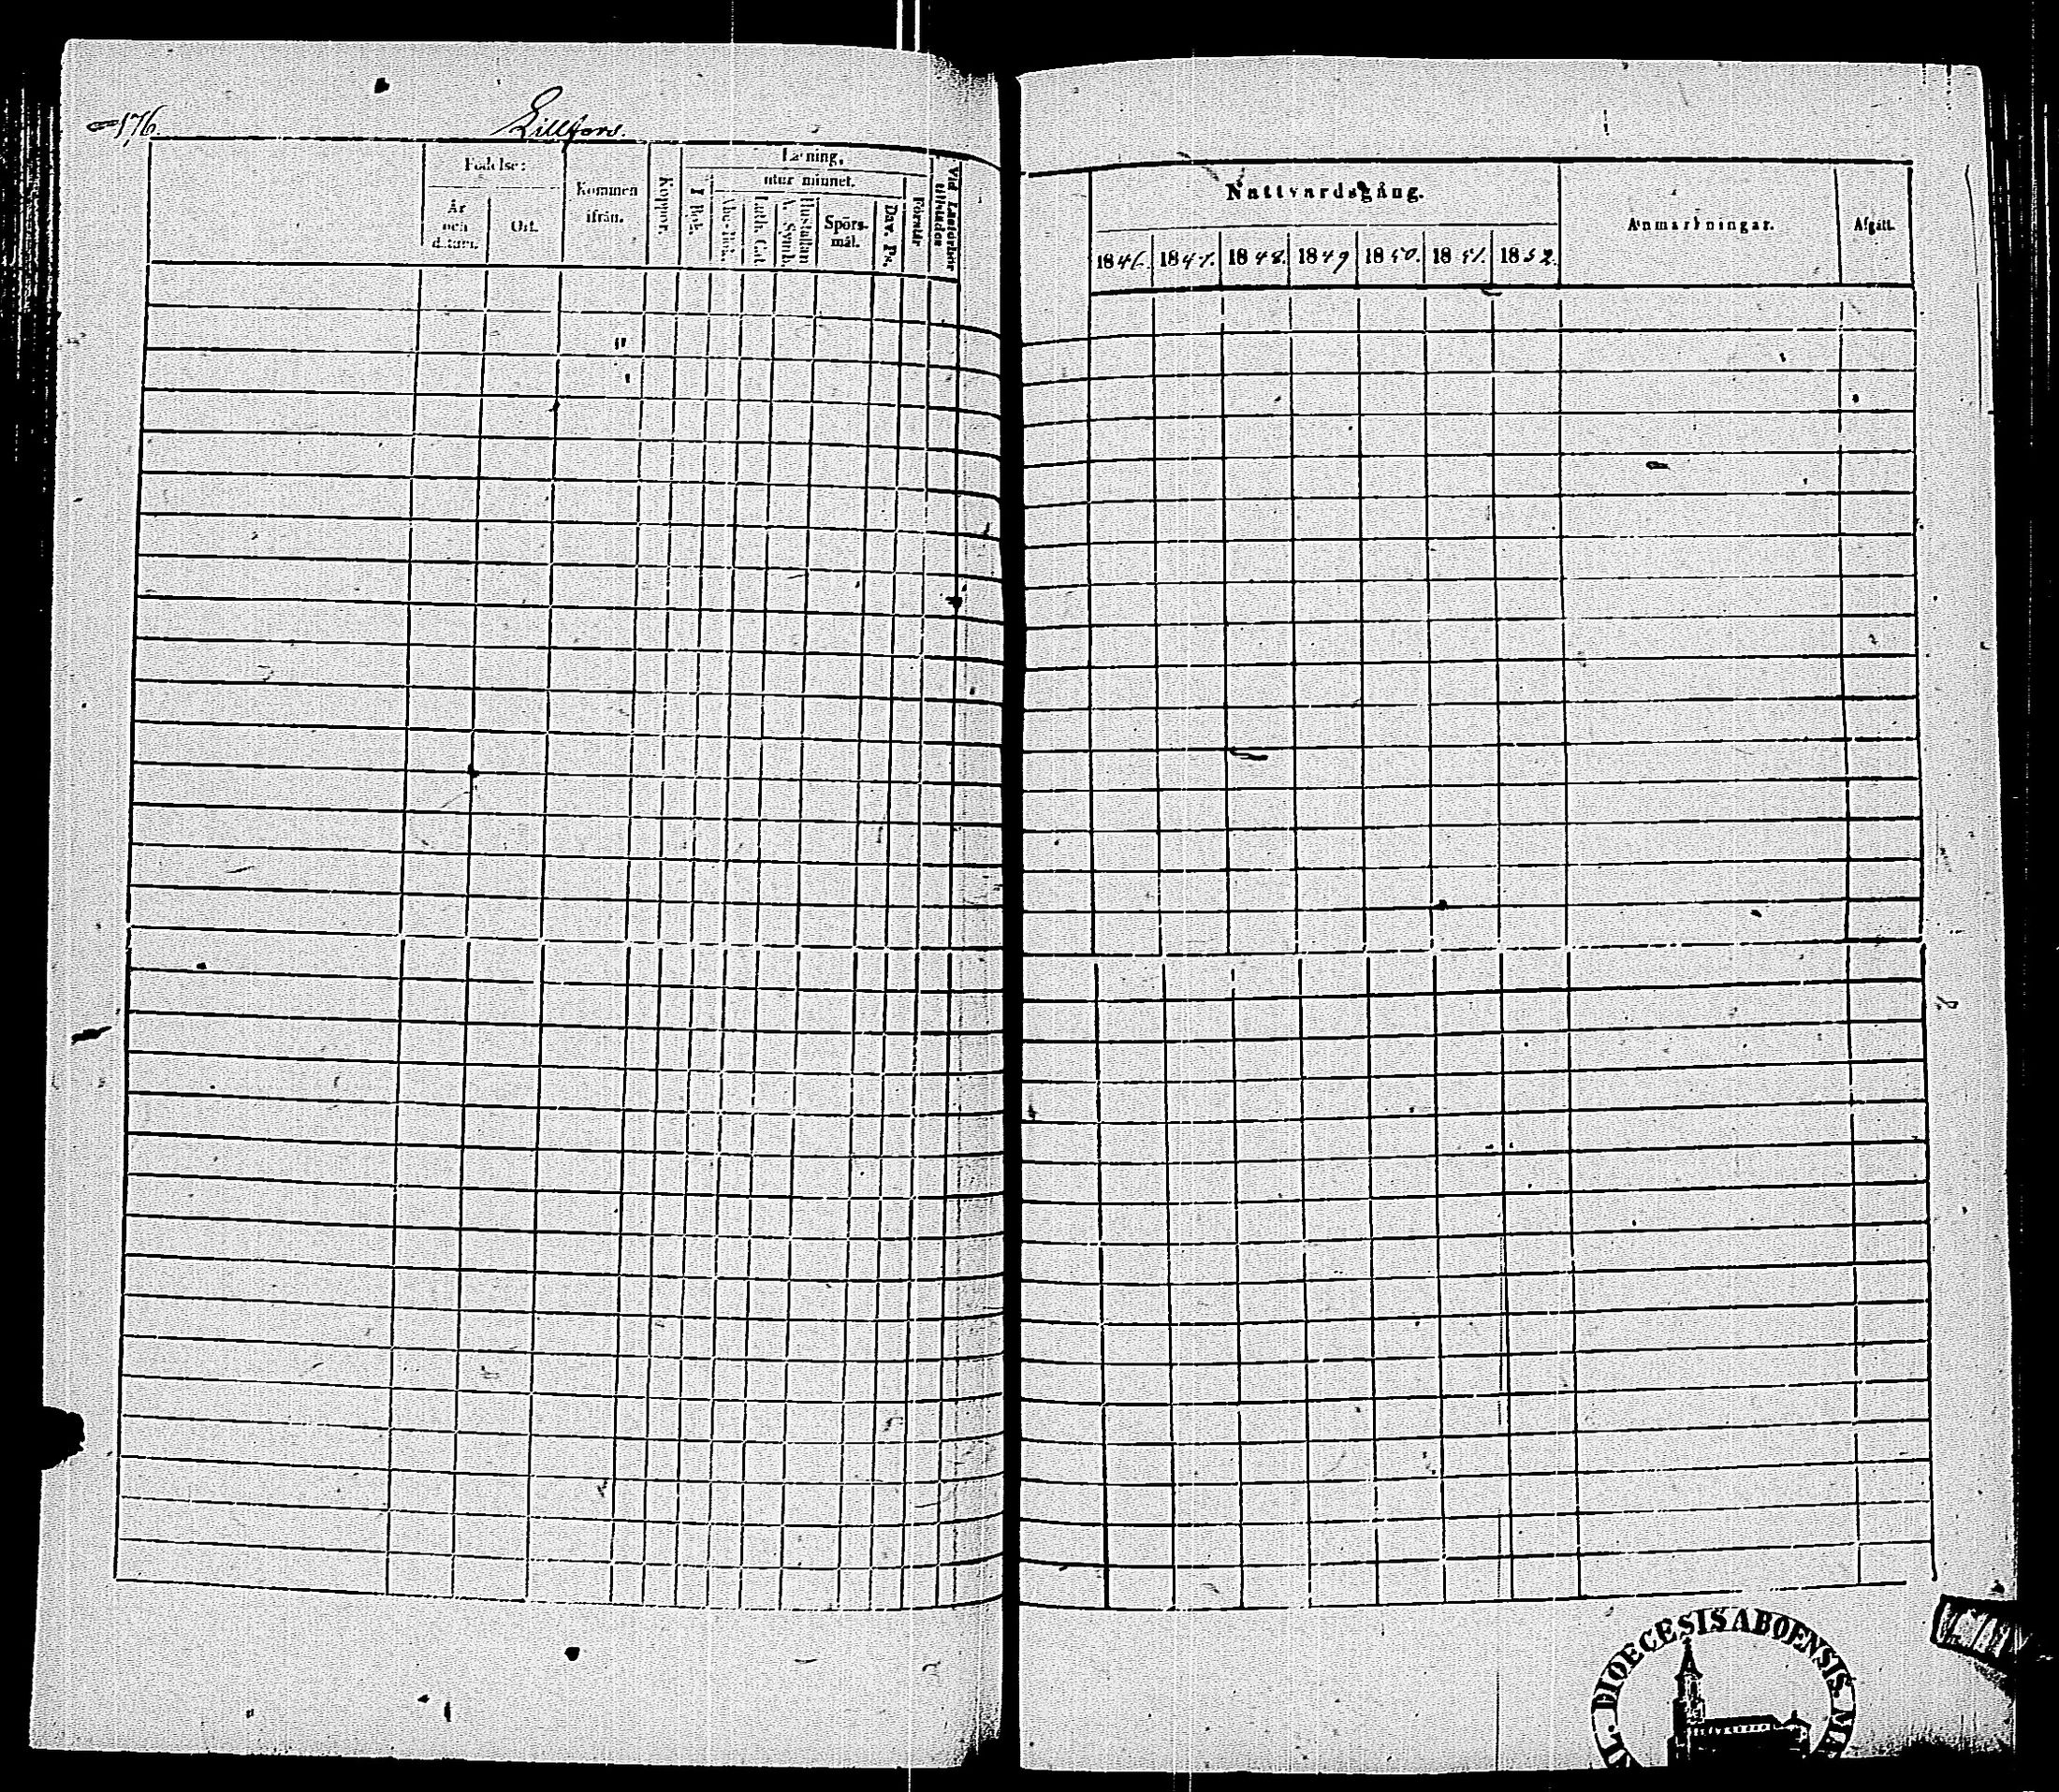 176.
Lillfors.
Födelse:
År och datum.
Ort.
Kommen ifrån.
Koppor.
Läsning,
utur minnet.
I Bok.
Abc-bok.
Luth. Cat.
Hustaflan
A. Symb.
Spörs-mål.
Dav. Ps.
Förstår
Vid Läsförhör tillstädes
Nattvardsgång.
1846. 1847. 1848. 1849 1850. 1851. 1852.
Anmärkningar.
Afgått.
DIOECESIS ABOENSIS.